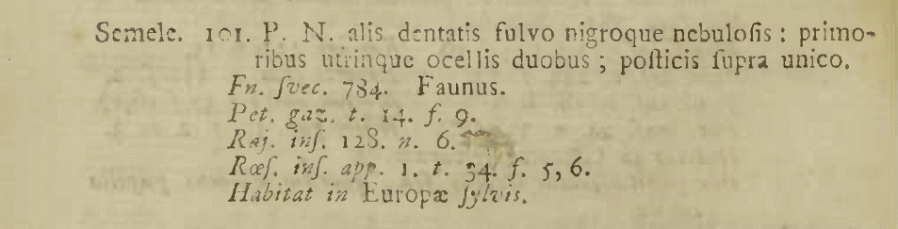 Semele. 101. P. N. alis dentatis fulvo nigroque nebuloſis: primo-
ribus utrinque ocellis duobus; poſticis ſupra unico.
Fn. ſvec. 784. Faunus.
Pet. gaz. t. 14. f. 9.
Raj. inſ. 128. n. 6.
Rœſ. inſ. app. 1. t. 34. f. 5, 6.
Habitat in Europæ ſylvis.